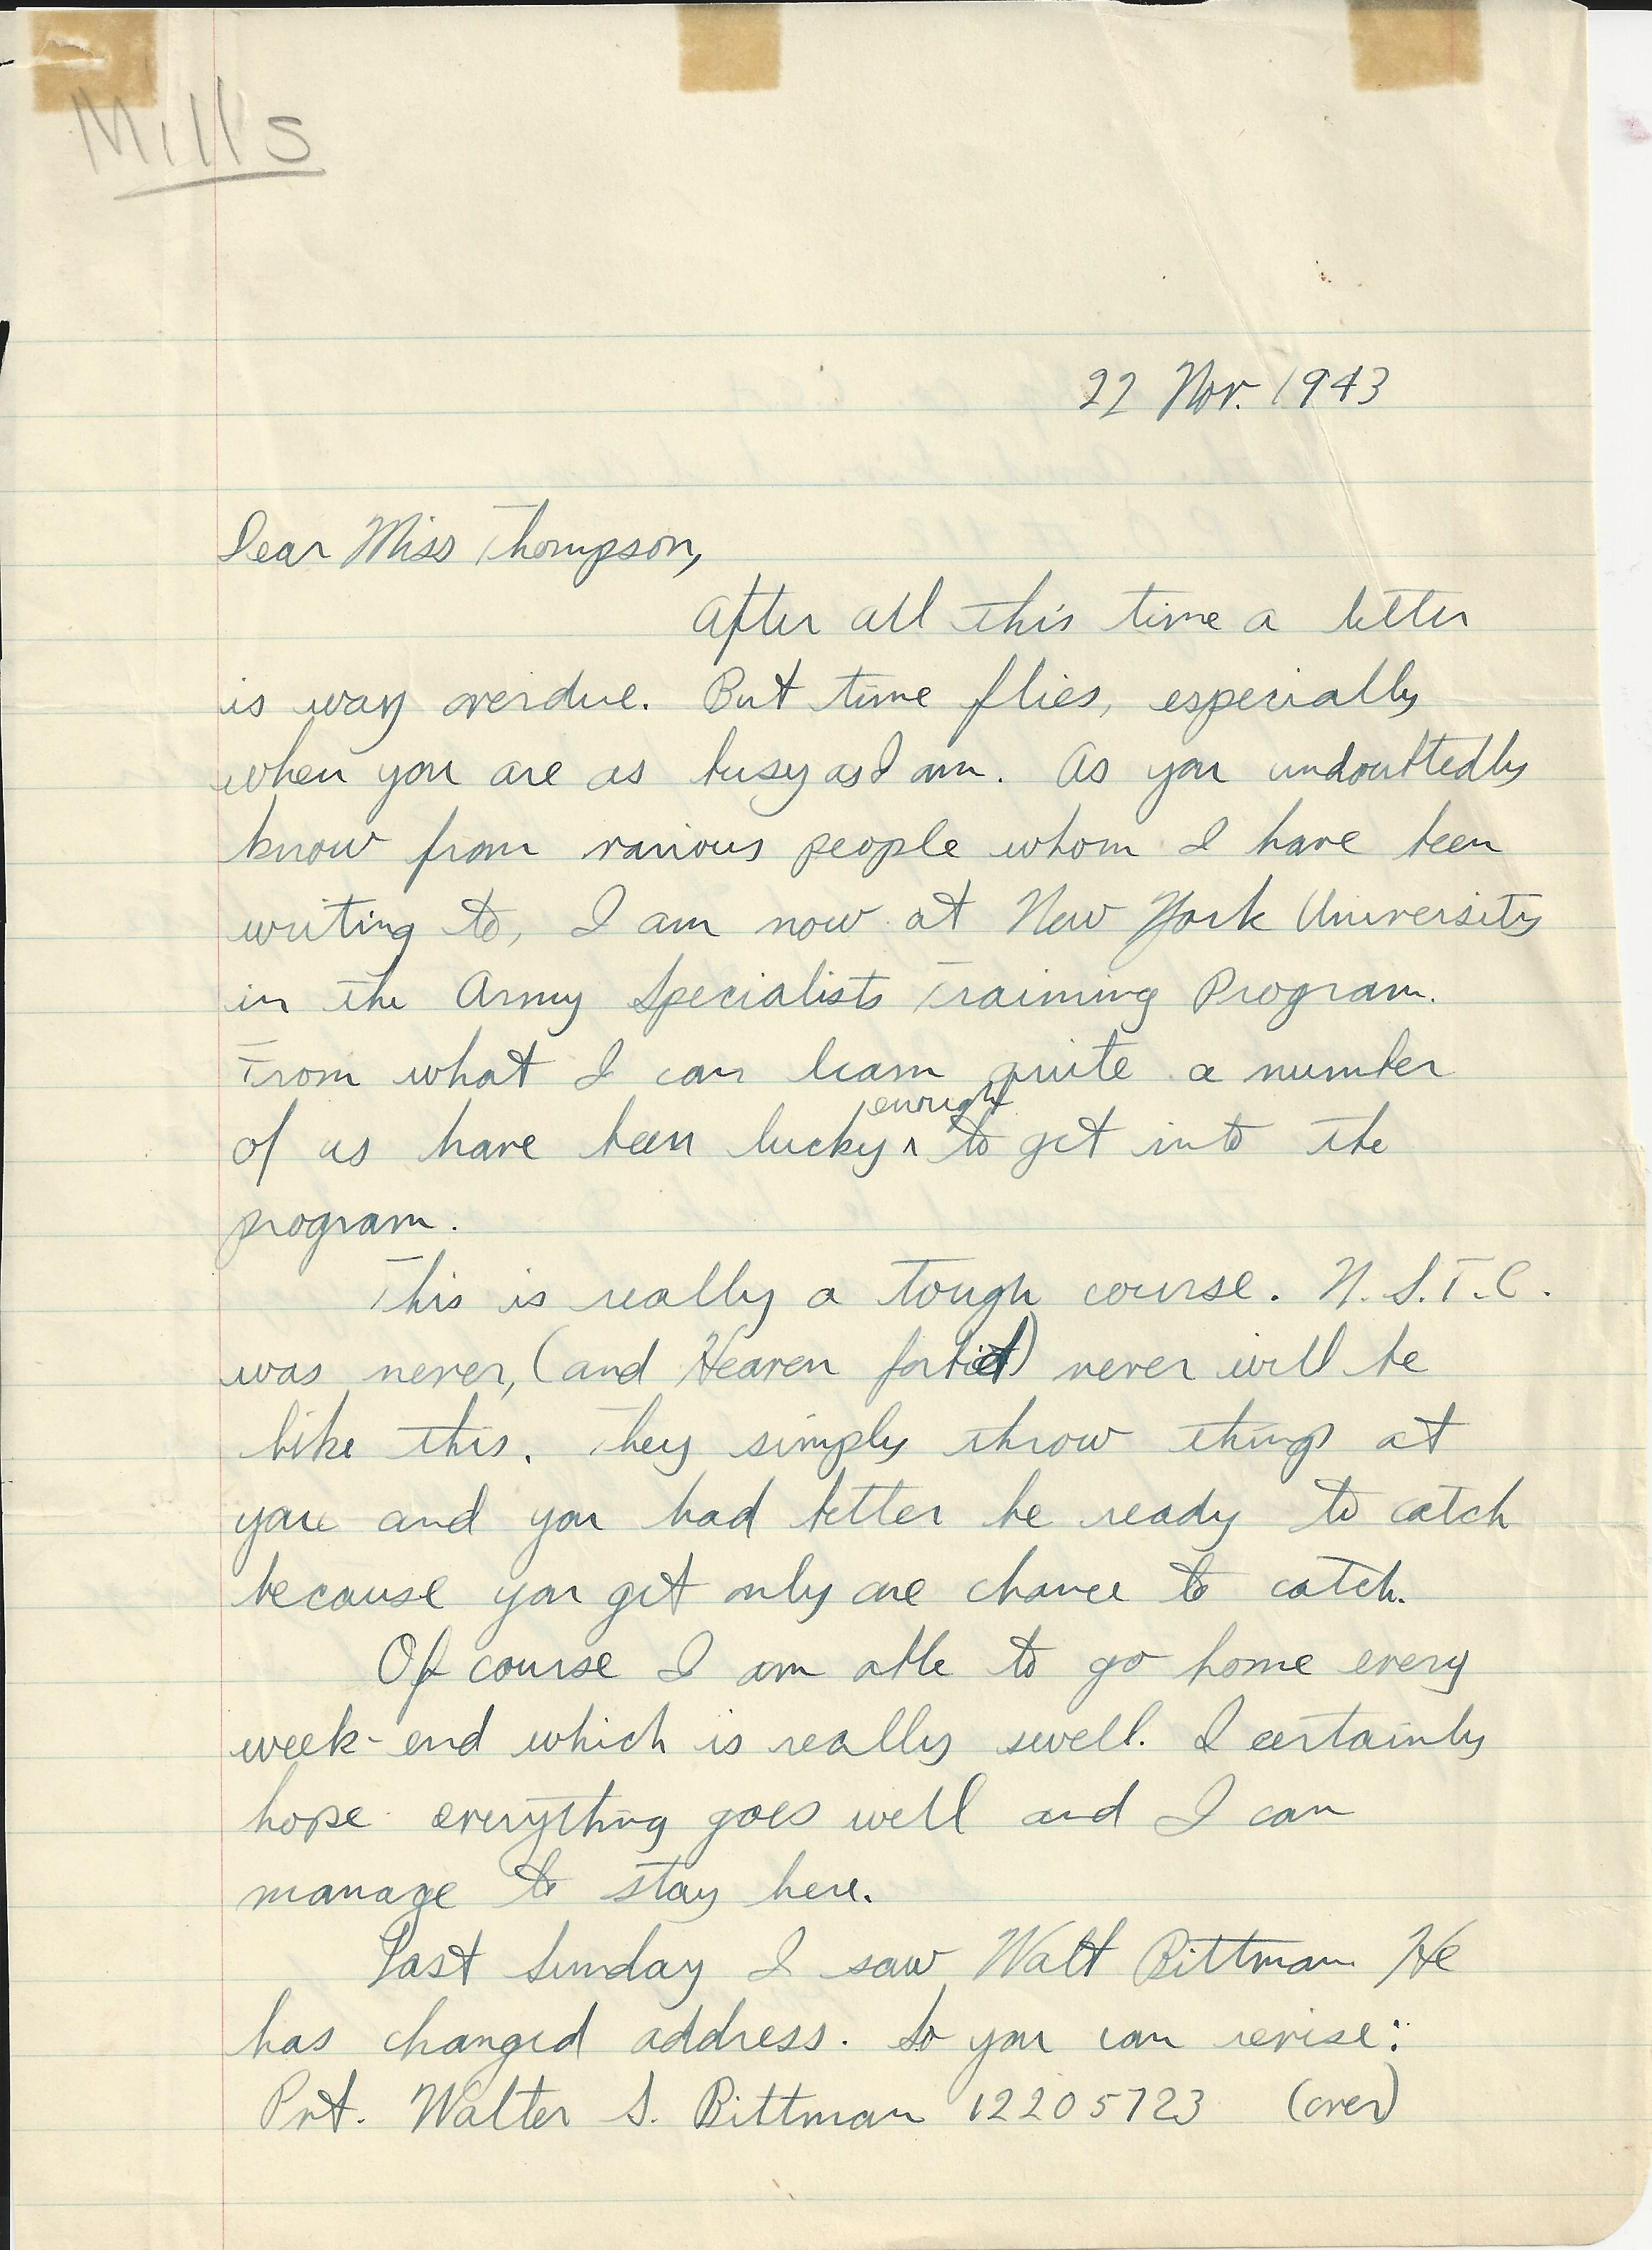 Mills
22 Nov. 1943
Dear Miss Thompson,
After all this time a letter
is way overdue. But time flies, especially
when you are as busy as I am. As you undoubtedly
know from various people whom I have been
writing to, I am now at New York University
in the Army Specialists Training Program.
From what I can learn quite a number
enough
of us have been lucky ^ to get into the
program.
This is really a tough course. N.S.T.C.
was never, (and Heaven forbid) never will be
like this. They simply throw things at
you and you had better be ready to catch
because you get only one chance to catch.
Of course I am able to go home every
week-end which is really swell. I certainly
hope everything goes well and I can
manage to stay here.
Last Sunday I saw Walt Bittman He
has changed address. So you can revise:
Pvt. Walter S. Bittman 12205723 (over)